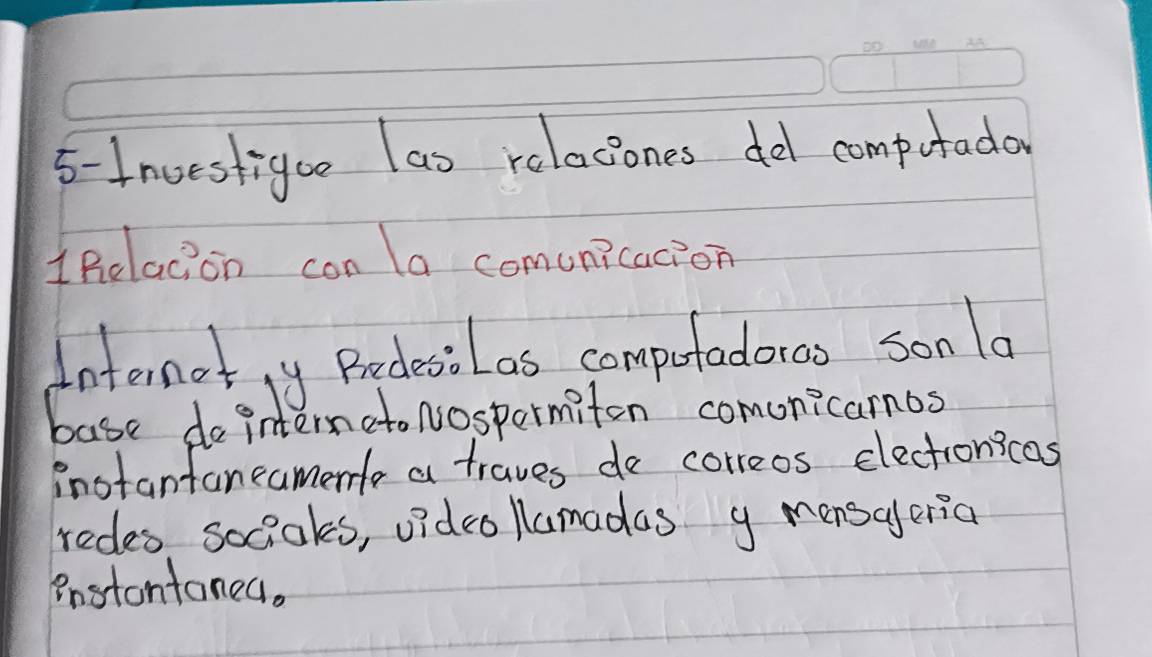 DD MM AA
5-Investigue las relaciones del computador
1 Relación con la comunicación
Internet y Redes: Las computadoras son la
base de internet. Nos permiten comunicarnos
instantaneamente a traves de correos electronicos
redes sociales, video llamadas y mensajeria
instantanea.